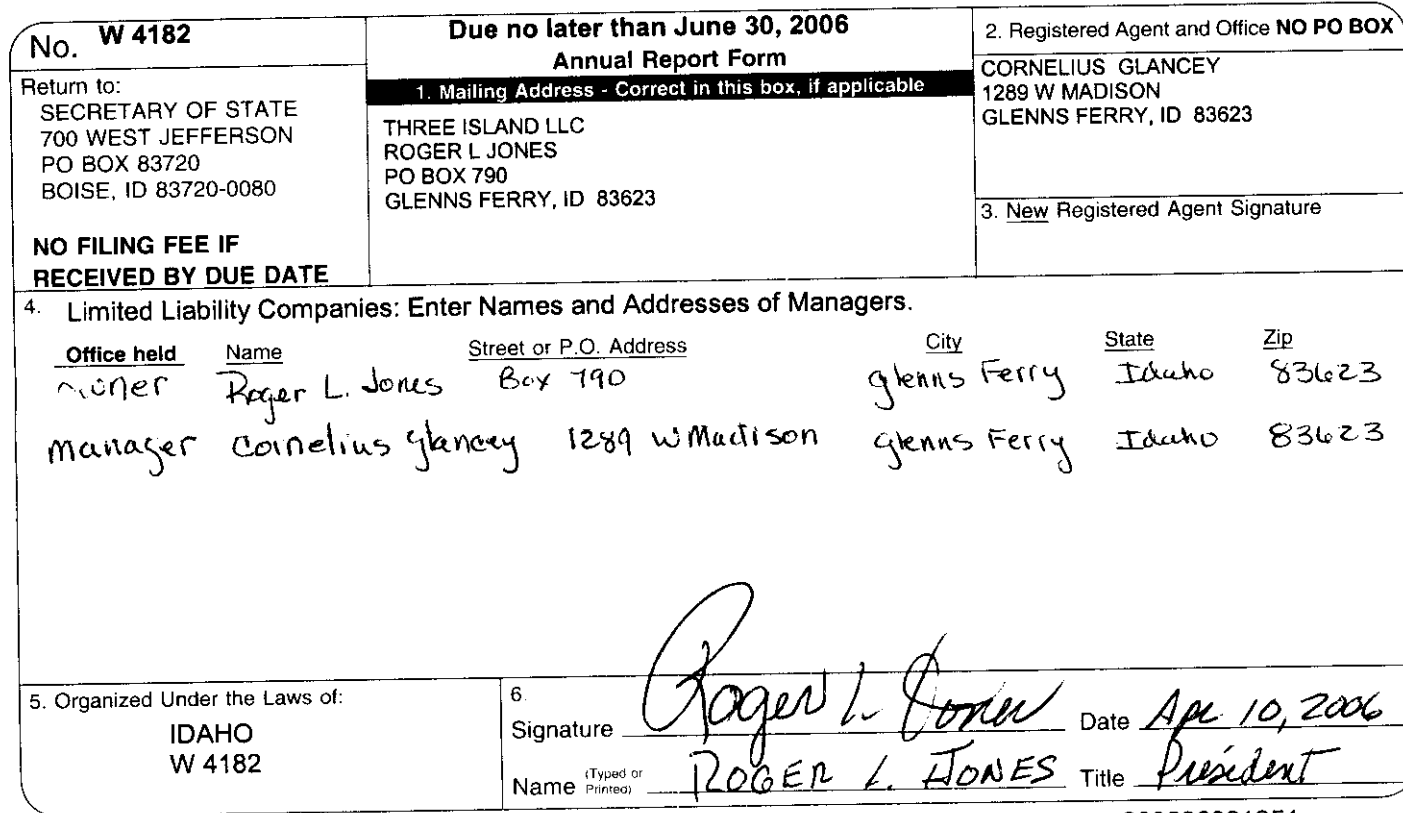 No. W 4182
Return to:
SECRETARY OF STATE
700 WEST JEFFERSON
PO BOX 83720
BOISE, ID 83720-0080
NO FILING FEE IF
RECEIVED BY DUE DATE
Due no later than June 30, 2006
Annual Report Form
1. Mailing Address - Correct in this box, if applicable
THREE ISLAND LLC
ROGER L JONES
PO BOX 790
GLENNS FERRY, ID 83623
2. Registered Agent and Office NO PO BOX
CORNELIUS GLANCEY
1289 W MADISON
GLENNS FERRY, ID 83623
3. New Registered Agent Signature
4. Limited Liability Companies: Enter Names and Addresses of Managers.
Office held Name Street or P.O. Address City State Zip
owner Roger L. Jones Box 790 Glenns Ferry Idaho 83623
manager Cornelius Glancey 1289 W Madison Glenns Ferry Idaho 83623
5. Organized Under the Laws of:
IDAHO
W 4182
6.
Signature Roger L. Jones Date Apr 10, 2006
Name (Typed or Printed) ROGER L. JONES Title President